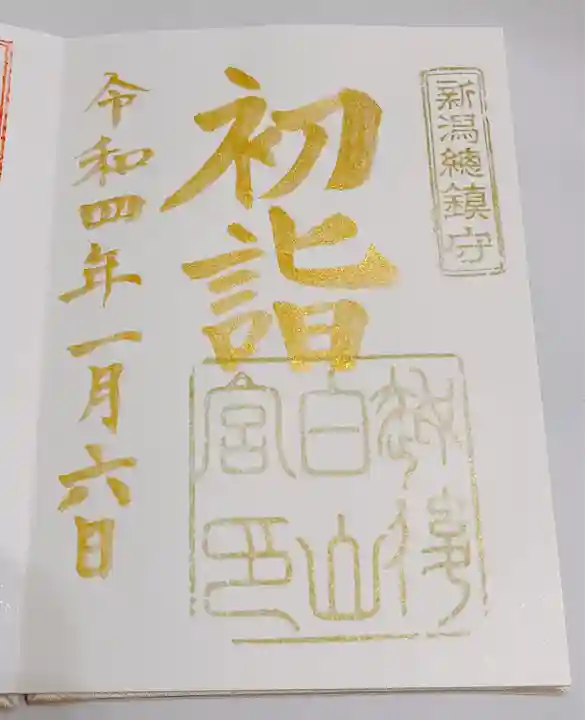 新潟總鎮守
初詣
越後
白山
宮印
令和四年一月六日